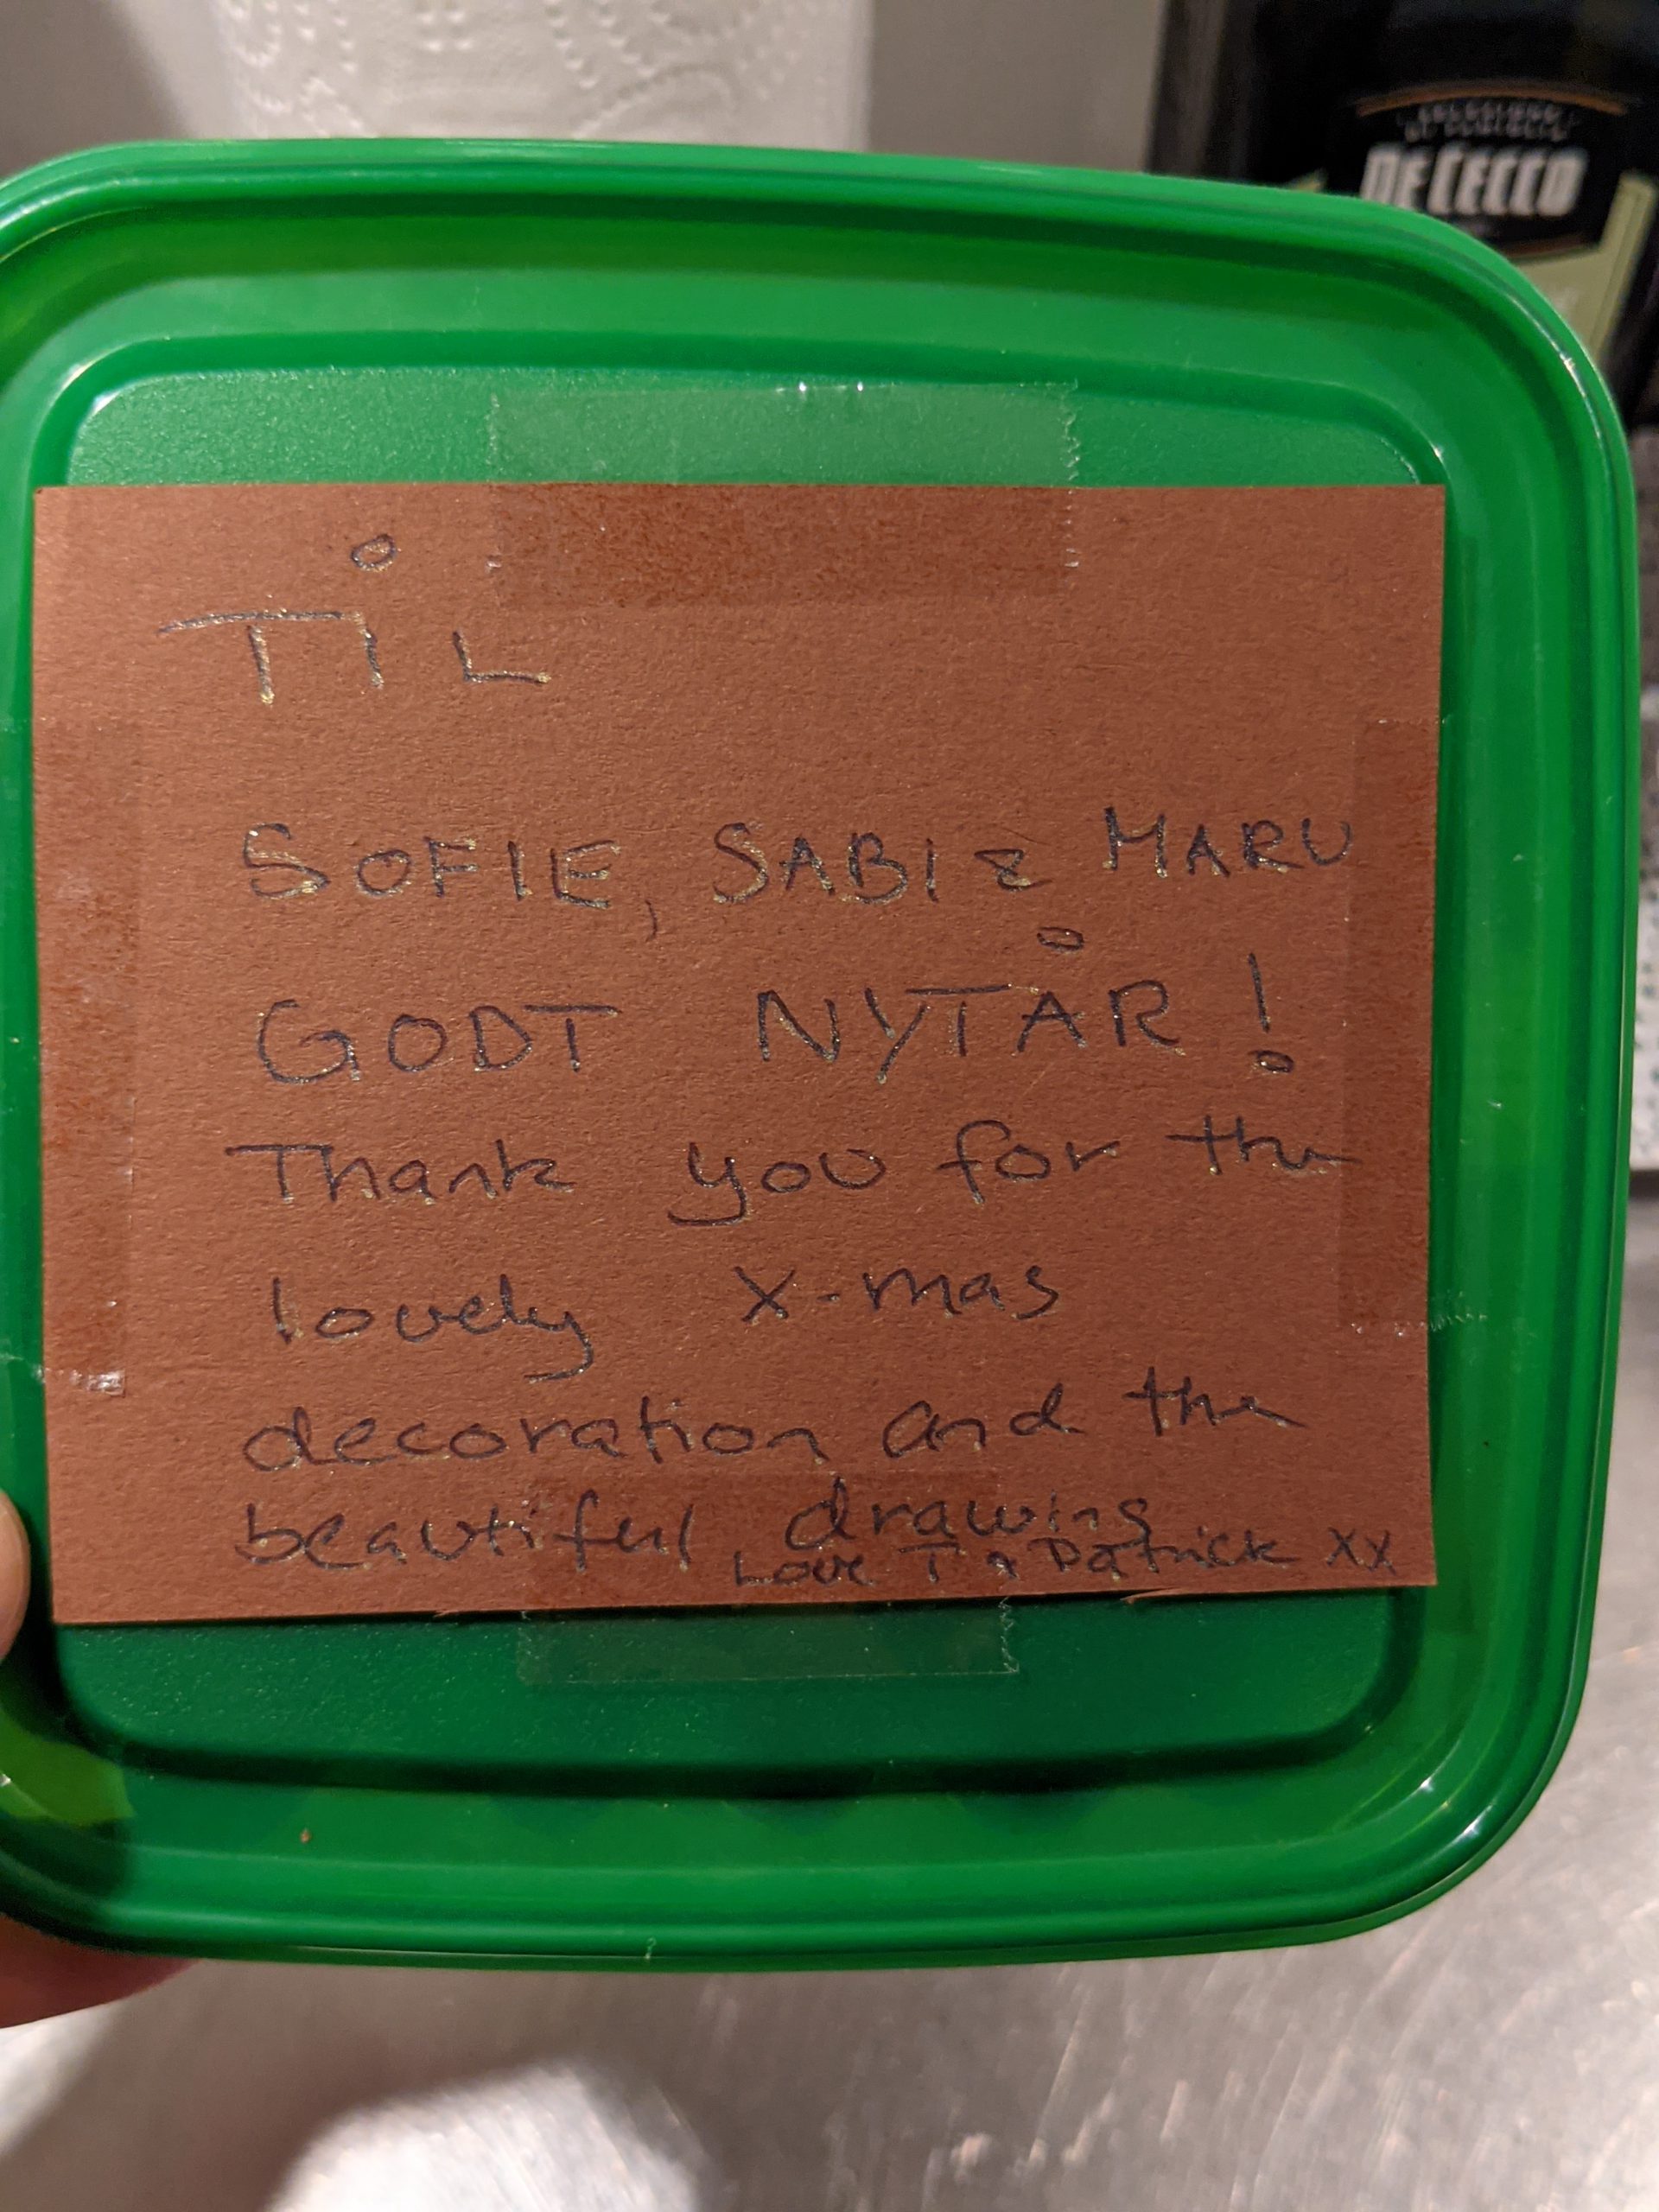 DE CECCO
TIL
SOFIE, SABI & MARU
GODT NYTÅR!
Thank you for the
lovely X-mas
decoration and the
beautiful drawing
Love T & Patrick xx